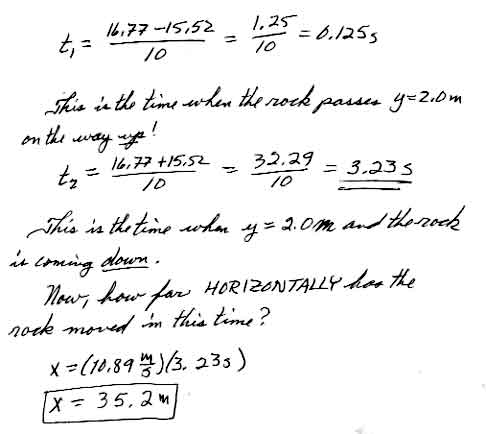 t₁ = (16.77 − 15.52)/10 = 1.25/10 = 0.125 s
This is the time when the rock passes y = 2.0 m
on the way up!
t₂ = (16.77 + 15.52)/10 = 32.29/10 = 3.23 s
This is the time when y = 2.0 m and the rock
is coming down.
Now, how far HORIZONTALLY has the
rock moved in this time?
x = (10.89 m/s)(3.23 s)
x = 35.2 m